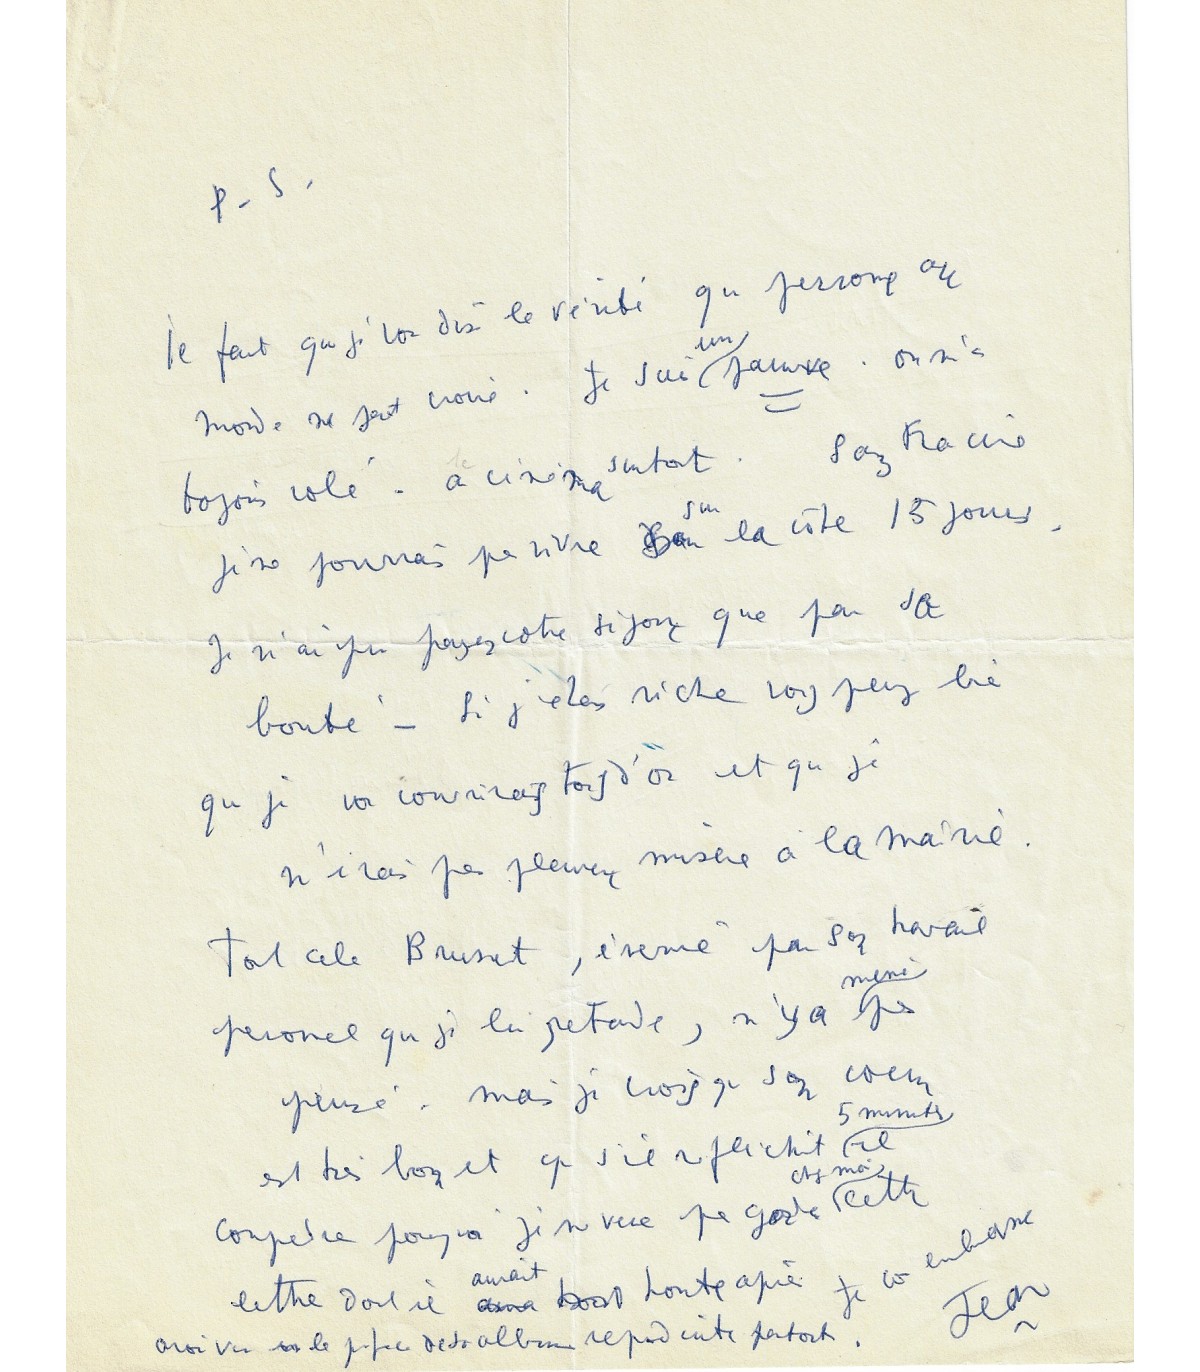 P.S.
Le fait que je vous dis la vérité que personne au
monde ne peut croire. Je suis un pauvre. on m'a
toujours volé. au cinéma surtout. Sans Francine
je ne pourrais pas vivre sur la côte 15 jours.
Je n'ai pu payer votre séjour que par sa
bonté – Si j'étais riche vous pensez bien
que je vous couvrirais tous d'or et que je
n'irais pas pleurer misère à la mairie.
Tout cela Brunet, énervé par son travail
personnel que je lui retarde, n'y a même pas
pensé. mais je crois que son cœur
est très bon et que s'il réfléchit 5 minutes il
comprendra pourquoi je ne veux pas garder chez moi cette
lettre dont il aurait honte après Je vous embrasse
avoir vu le préface de son album reproduite partout.
Jean